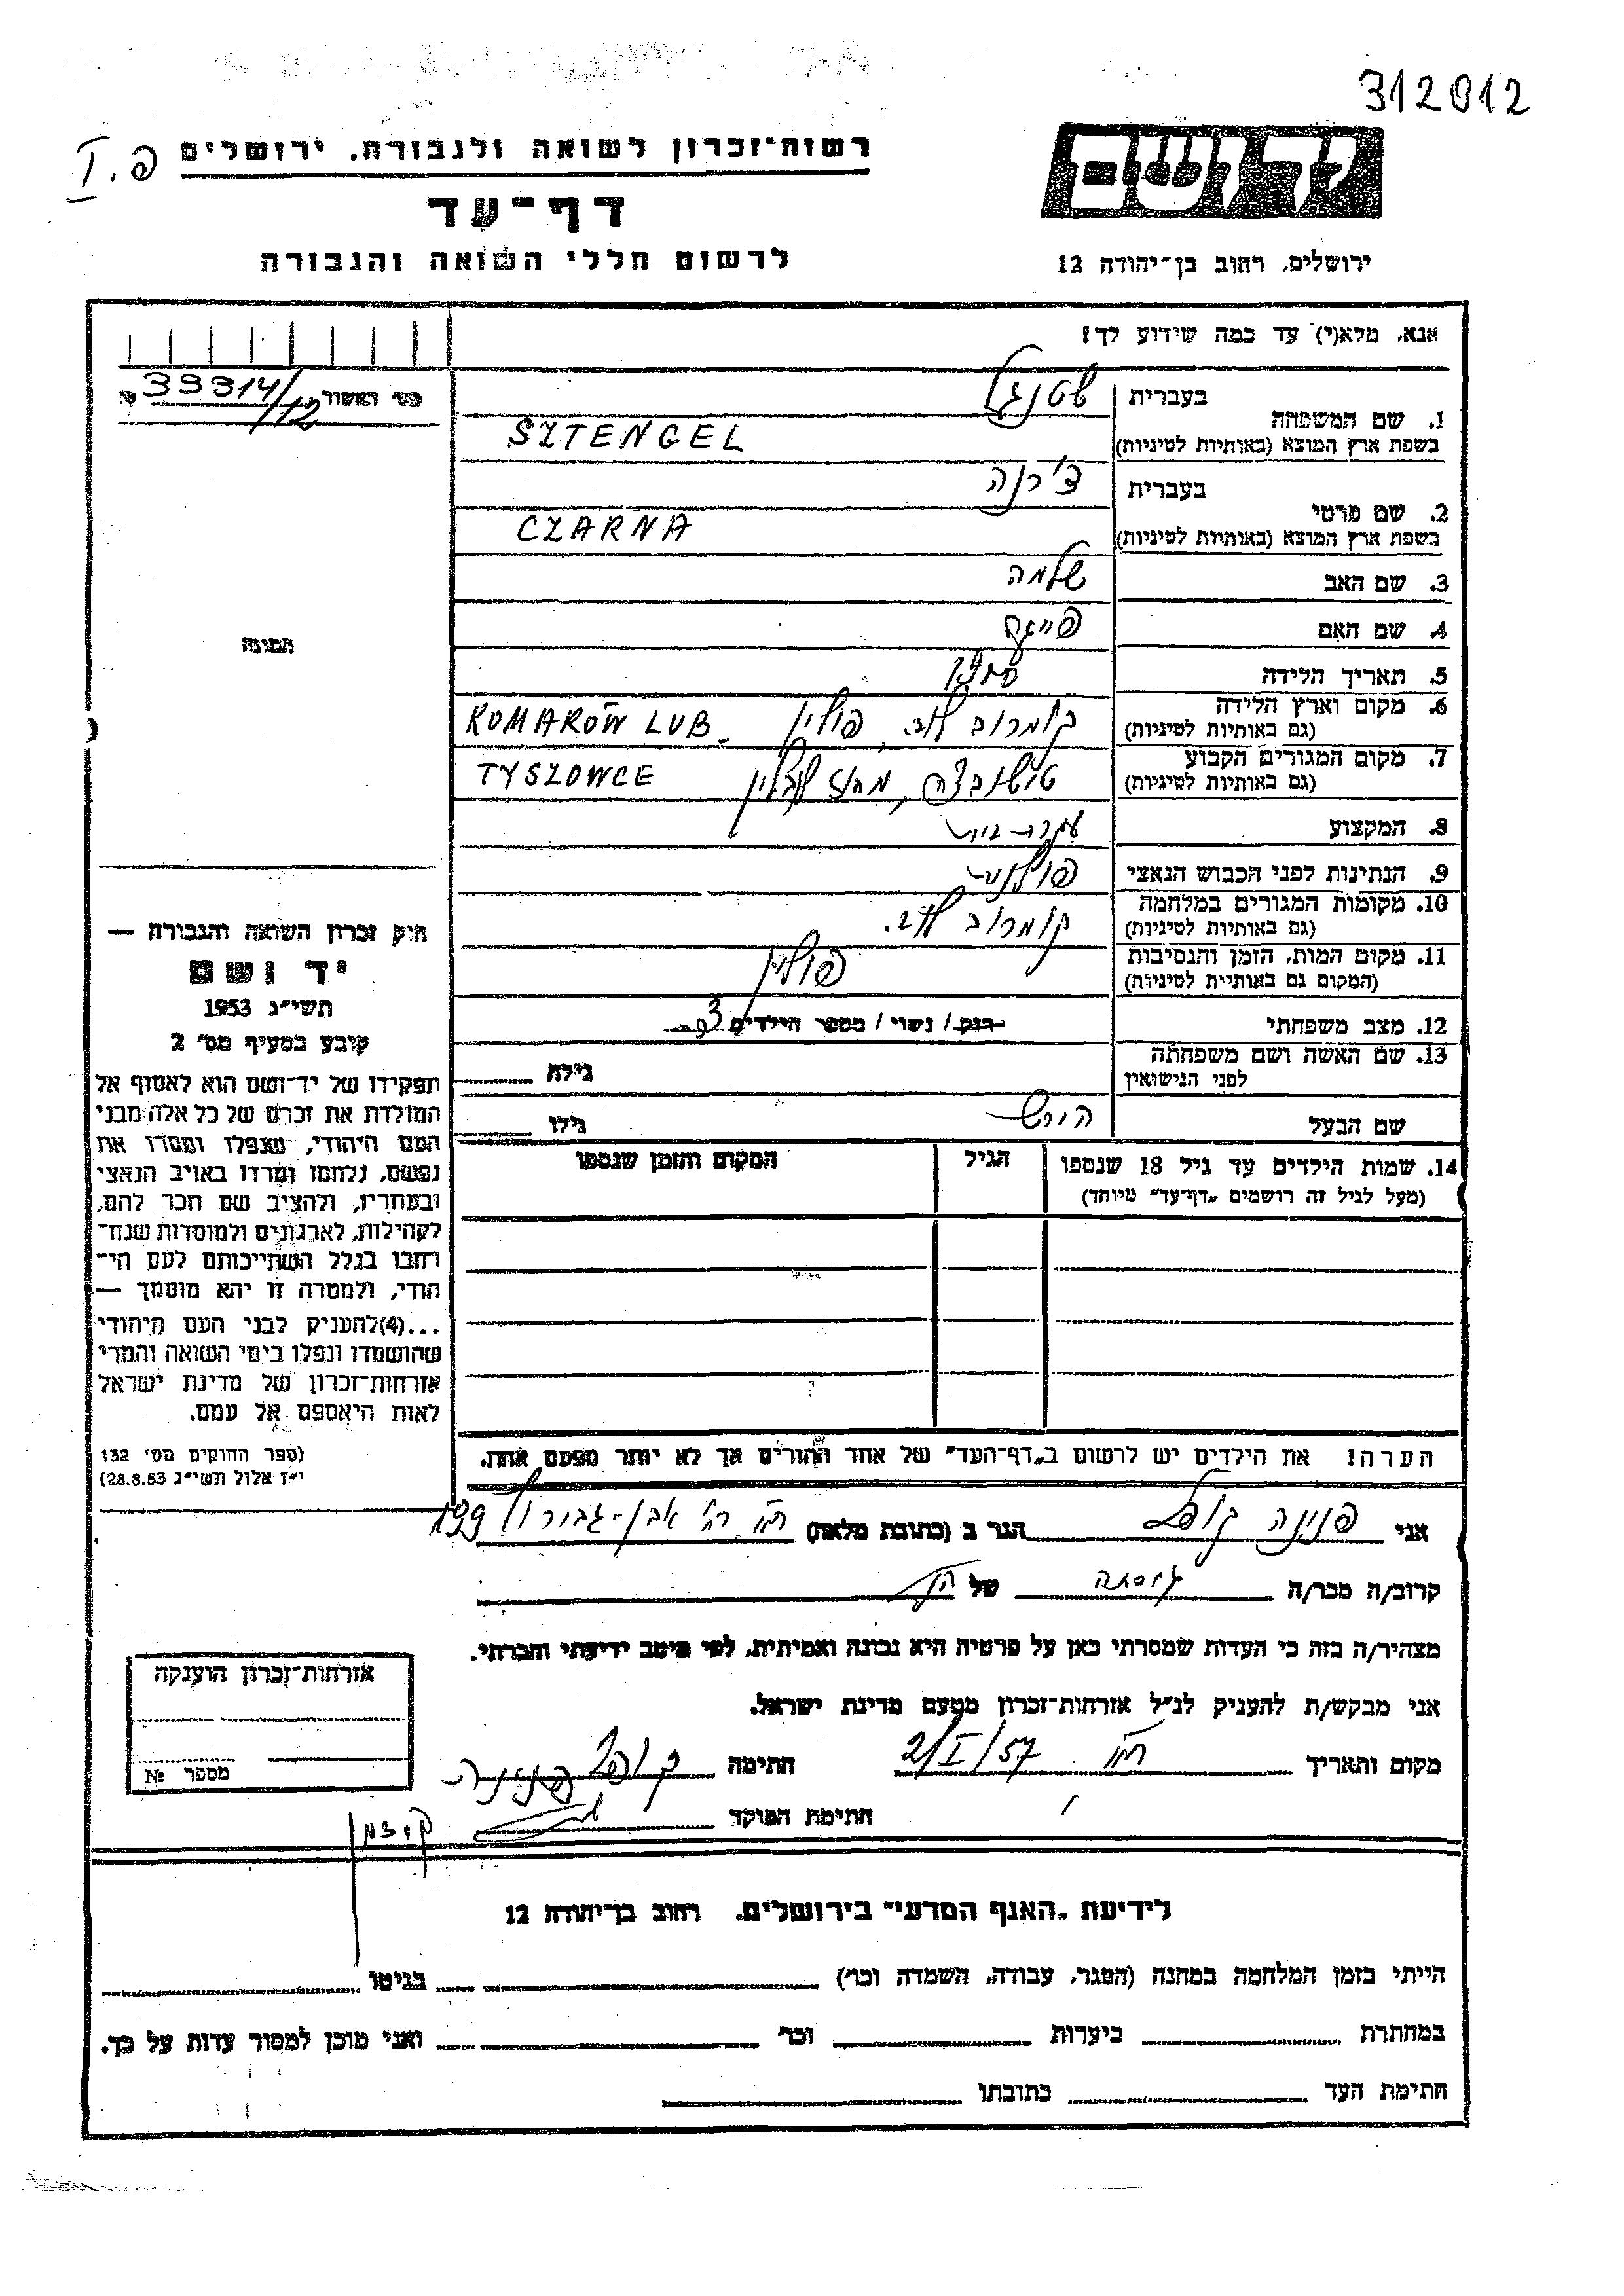 312012
רשות־זכרון לשואה ולגבורה, ירושלים
פ. I
דף־עד
לרשום חללי השואה והגבורה
ירושלים, רחוב בן־יהודה 12
אנא, מלא(י) עד כמה שידוע לך!
33314/12
1. שם המשפחה
בעברית שטנגל
בשפת ארץ המוצא (באותיות לטיניות) SZTENGEL
2. שם פרטי
בעברית צ'רנה
בשפת ארץ המוצא (באותיות לטיניות) CZARNA
3. שם האב שלמה
4. שם האם פייגה
5. תאריך הלידה
6. מקום וארץ הלידה קומרוב לוב. פולין KOMARÓW LUB.
(גם באותיות לטיניות)
7. מקום המגורים הקבוע טישובצה, מחוז לובלין TYSZOWCE
(גם באותיות לטיניות)
8. המקצוע עקרת-בית
9. הנתינות לפני הכבוש הנאצי פולנית
10. מקומות המגורים במלחמה קומרוב לוב.
(גם באותיות לטיניות)
11. מקום המות, הזמן והנסיבות פולין
(המקום גם באותיות לטיניות)
12. מצב משפחתי רוק / נשוי / מספר הילדים 3
13. שם האשה ושם משפחתה גילה
לפני הנישואין
שם הבעל הירש גילו
14. שמות הילדים עד גיל 18 שנספו הגיל המקום והזמן שנספו
(מעל לגיל זה רושמים „דף־עד” מיוחד)
הערה! את הילדים יש לרשום ב„דף־העד” של אחד ההורים אך לא יותר מפעם אחת.
התמונה
חוק זכרון השואה והגבורה —
יד ושם
תשי״ג 1953
קובע בסעיף מס׳ 2
תפקידו של יד־ושם הוא לאסוף אל
המולדת את זכרם של כל אלה מבני
העם היהודי, שנפלו ומסרו את
נפשם, נלחמו ומרדו באויב הנאצי
ובעוזריו, ולהציב שם וזכר להם,
לקהילות, לארגונים ולמוסדות שנח־
רבו בגלל השתייכותם לעם הי־
הודי, ולמטרה זו יהא מוסמך —
...(4)להעניק לבני העם היהודי
שהושמדו ונפלו בימי השואה והמרי
אזרחות־זכרון של מדינת ישראל
לאות היאספם אל עמם.
(ספר החוקים מס׳ 132
י״ז אלול תשי״ג 28.8.53)
אני פנינה קופל הגר ב (כתובת מלאה) ת״א רח' אבן-גבירול 199
קרוב/ה מכר/ה גיסתה של הנ״ל
מצהיר/ה בזה כי העדות שמסרתי כאן על פרטיה היא נכונה ואמיתית, לפי מיטב ידיעתי והכרתי.
אני מבקש/ת להעניק לנ״ל אזרחות־זכרון מטעם מדינת ישראל.
מקום ותאריך ת״א 2/I/57 חתימה קופל פנינה
חתימת הפוקד
אזרחות־זכרון הוענקה
מספר №
לידיעת „האגף המדעי” בירושלים, רחוב בן־יהודה 12
הייתי בזמן המלחמה במחנה (הסגר, עבודה, השמדה וכו׳) בגיטו
במחתרת ביערות וכו׳ ואני מוכן למסור עדות על כך.
חתימת העד כתובתו